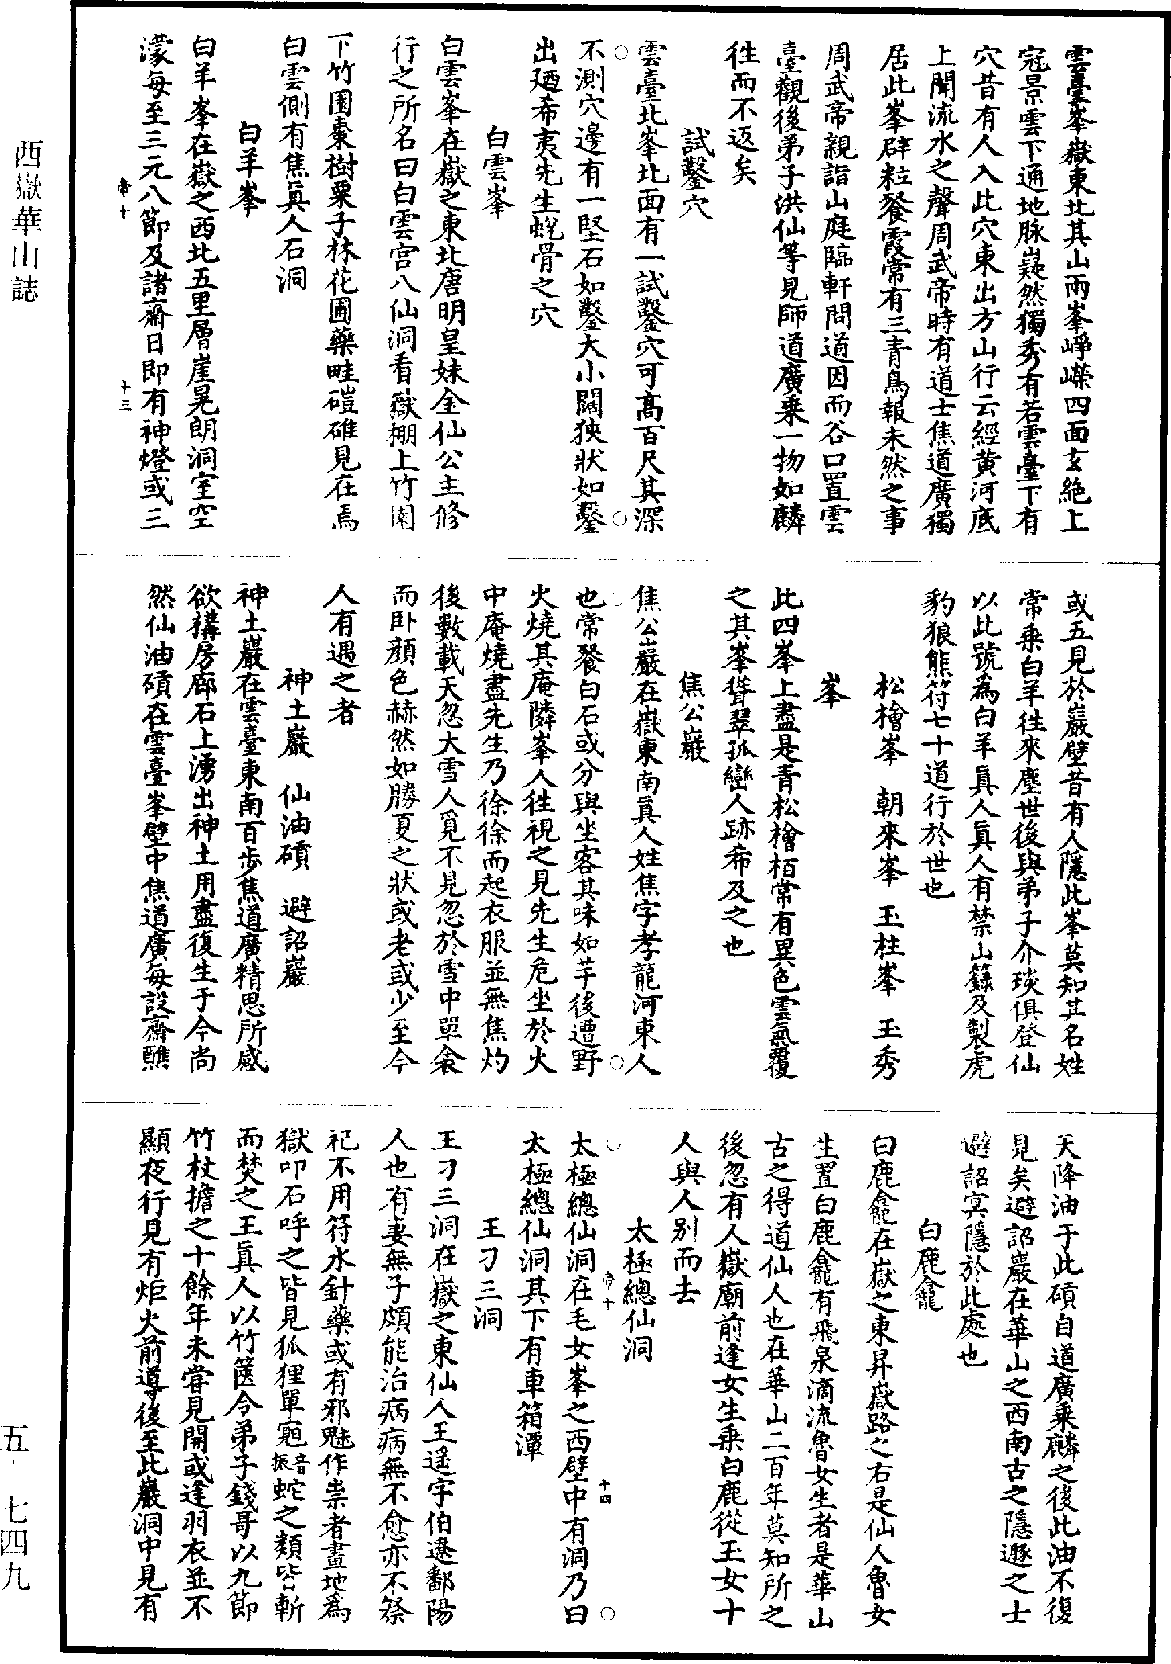 雲臺峯嶽東北其山兩峯崢嶸四面玄絶上
冠景雲下通地脉嶷然獨秀有若雲臺下有
穴昔有人入此穴東出方山行云經黃河底
上聞流水之聲周武帝時有道士焦道廣獨
居此峯辟粒餐霞常有三青鳥報未然之事
周武帝親詣山庭臨軒問道因而谷口置雲
臺觀後弟子洪仙等見師道廣乗一物如麟
徃而不返矣
試鑿穴
雲臺北峯北面有一試鑿穴可高百尺其深
不測穴邊有一堅石如鑿大小闊狹狀如鑿
出廼希夷先生蛻骨之穴
白雲峯
白雲峯在嶽之東北唐明皇妹金仙公主修
行之所名曰白雲宫八仙洞看嶽棚上竹園
下竹園棗樹栗子林花圃藥畦磑碓見在焉
白雲側有焦眞人石洞
白羊峯
白羊峯在嶽之西北五里層崖晃朗洞室空
濛每至三元八節及諸齋日即有神燈或三
或五見於巖壁昔有人隱此峯莫知其名姓
常乗白羊徃來塵世後與弟子介琰俱登仙
以此號爲白羊眞人眞人有禁山籙及製虎
豹狼熊符七十道行於世也
松檜峯　朝來峯　玉柱峯　玉秀
峯
此四峯上盡是青松檜栢常有異色雲氣覆
之其峯聳翠孤巒人跡希及之也
焦公巖
焦公巖在嶽東南眞人姓焦字孝龍河東人
也常餐白石或分與坐客其味如芋後遭野
火燒其庵隣峯人徃視之見先生危坐於火
中庵燒盡先生乃徐徐而起衣服並無焦灼
後數載天忽大雪人覔不見忽於雪中單衾
而卧顏色赫然如勝夏之狀或老或少至今
人有遇之者
神土巖　仙油磧　避詔巖
神土巖在雲臺東南百步焦道廣精思所感
欲構房廊石上湧出神土用盡復生于今尚
然仙油磧在雲臺峯壁中焦道廣每設齋醮
天降油于此磧自道廣乗麟之後此油不復
見矣避詔巖在華山之西南古之隱遯之士
避詔冥隱於此處也
白鹿龕
白鹿龕在嶽之東昇嶽路之右是仙人魯女
生置白鹿龕有飛泉滴流魯女生者是華山
古之得道仙人也在華山二百年莫知所之
後忽有人嶽廟前逢女生乗白鹿從玉女十
人與人别而去
太極總仙洞
太極總仙洞在毛女峯之西壁中有洞乃曰
太極總仙洞其下有車箱潭
王刁三洞
王刁三洞在嶽之東仙人王遥字伯遼鄱陽
人也有妻無子頗能治病病無不愈亦不祭
祀不用符水針藥或有邪魅作祟者畫地爲
獄叩石呼之皆見狐狸單𧈭音振蛇之類皆斬
而焚之王眞人以竹篋令弟子錢哥以九節
竹杖擔之十餘年未甞見開或逢羽衣並不
顯夜行見有炬火前導後至此巖洞中見有
帝十
十三
帝十
十四
西嶽華山誌
五-七四九